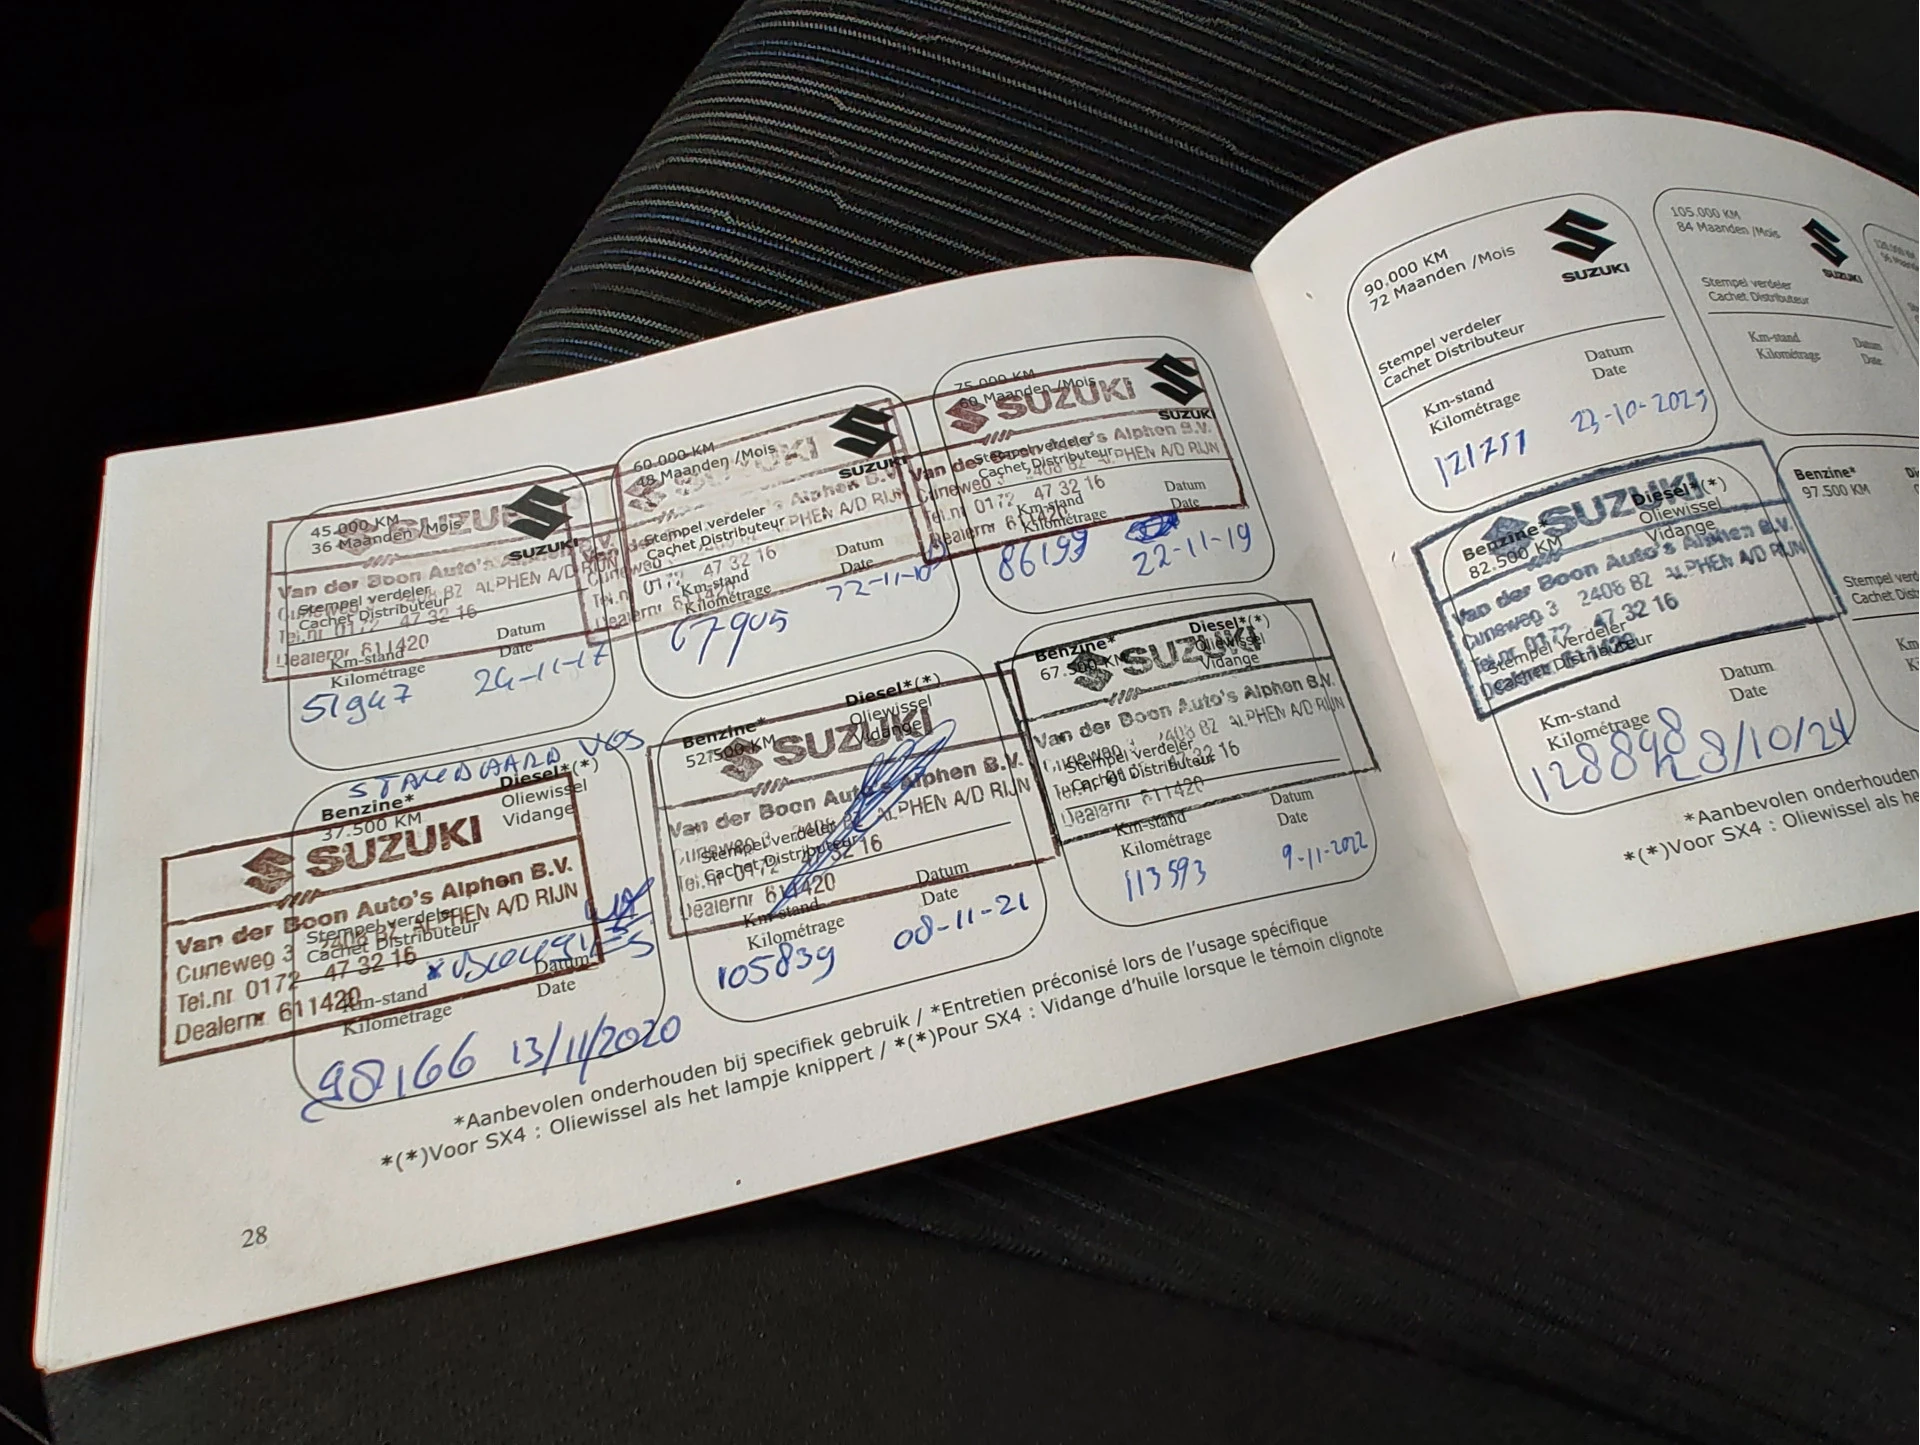 45.000 KM
36 Maanden /Mois
SUZUKI
SUZUKI
Van der Boon Auto's Alphen B.V.
2408 BZ ALPHEN A/D RIJN
Stempel verdeler
Cachet Distributeur
Tel.nr 0172 47 32 16
Dealernr 611420
Km-stand
Kilométrage
Datum
Date
51947
24-11-17
60.000 KM
48 Maanden /Mois
SUZUKI
SUZUKI
Stempel verdeler
Cachet Distributeur
ALPHEN A/D RIJN
47 32 16
Km-stand
Kilométrage
Datum
Date
67905
22-11-18
75.000 KM
60 Maanden /Mois
SUZUKI
SUZUKI
Van der Boon Auto's Alphen B.V.
Stempel verdeler
Cachet Distributeur
Cuneweg 3 2408 BZ ALPHEN A/D RIJN
Tel.nr 0172 47 32 16
Dealernr 611420
Km-stand
Kilométrage
Datum
Date
86199
22-11-19
STANDAARD
Benzine*
37.500 KM
Diesel*(*)
Oliewissel
Vidange
SUZUKI
Van der Boon Auto's Alphen B.V.
Stempel verdeler
Cachet Distributeur
Cuneweg 3 2408 BZ ALPHEN A/D RIJN
Tel.nr 0172 47 32 16
Dealernr 611420
Km-stand
Kilométrage
Datum
Date
98166 13/11/2020
Benzine*
52.500 KM
Diesel*(*)
Oliewissel
Vidange
SUZUKI
Van der Boon Auto's Alphen B.V.
Cuneweg 3 2408 BZ ALPHEN A/D RIJN
Stempel verdeler
Cachet Distributeur
Tel.nr 0172 47 32 16
Dealernr 611420
Km-stand
Kilométrage
Datum
Date
105839
08-11-21
Benzine*
67.500 KM
Diesel*(*)
Oliewissel
Vidange
SUZUKI
Van der Boon Auto's Alphen B.V.
Cuneweg 3 2408 BZ ALPHEN A/D RIJN
Stempel verdeler
Cachet Distributeur
47 32 16
Dealernr 611420
Km-stand
Kilométrage
Datum
Date
113593
9-11-2022
*Aanbevolen onderhouden bij specifiek gebruik / *Entretien préconisé lors de l'usage spécifique
*(*)Voor SX4 : Oliewissel als het lampje knippert / *(*)Pour SX4 : Vidange d'huile lorsque le témoin clignote
28
90.000 KM
72 Maanden /Mois
SUZUKI
Stempel verdeler
Cachet Distributeur
Km-stand
Kilométrage
Datum
Date
121751
23-10-2023
105.000 KM
84 Maanden /Mois
SUZUKI
Stempel verdeler
Cachet Distributeur
Km-stand
Kilométrage
Datum
Date
Benzine*
82.500 KM
Diesel*(*)
Oliewissel
Vidange
SUZUKI
Van der Boon Auto's Alphen B.V.
Cuneweg 3 2408 BZ ALPHEN A/D RIJN
Tel.nr 0172 47 32 16
Stempel verdeler
Cachet Distributeur
Km-stand
Kilométrage
Datum
Date
128898 28/10/24
Benzine*
97.500 KM
Stempel
Cachet
*Aanbevolen onderhouden
*(*)Voor SX4 : Oliewissel als